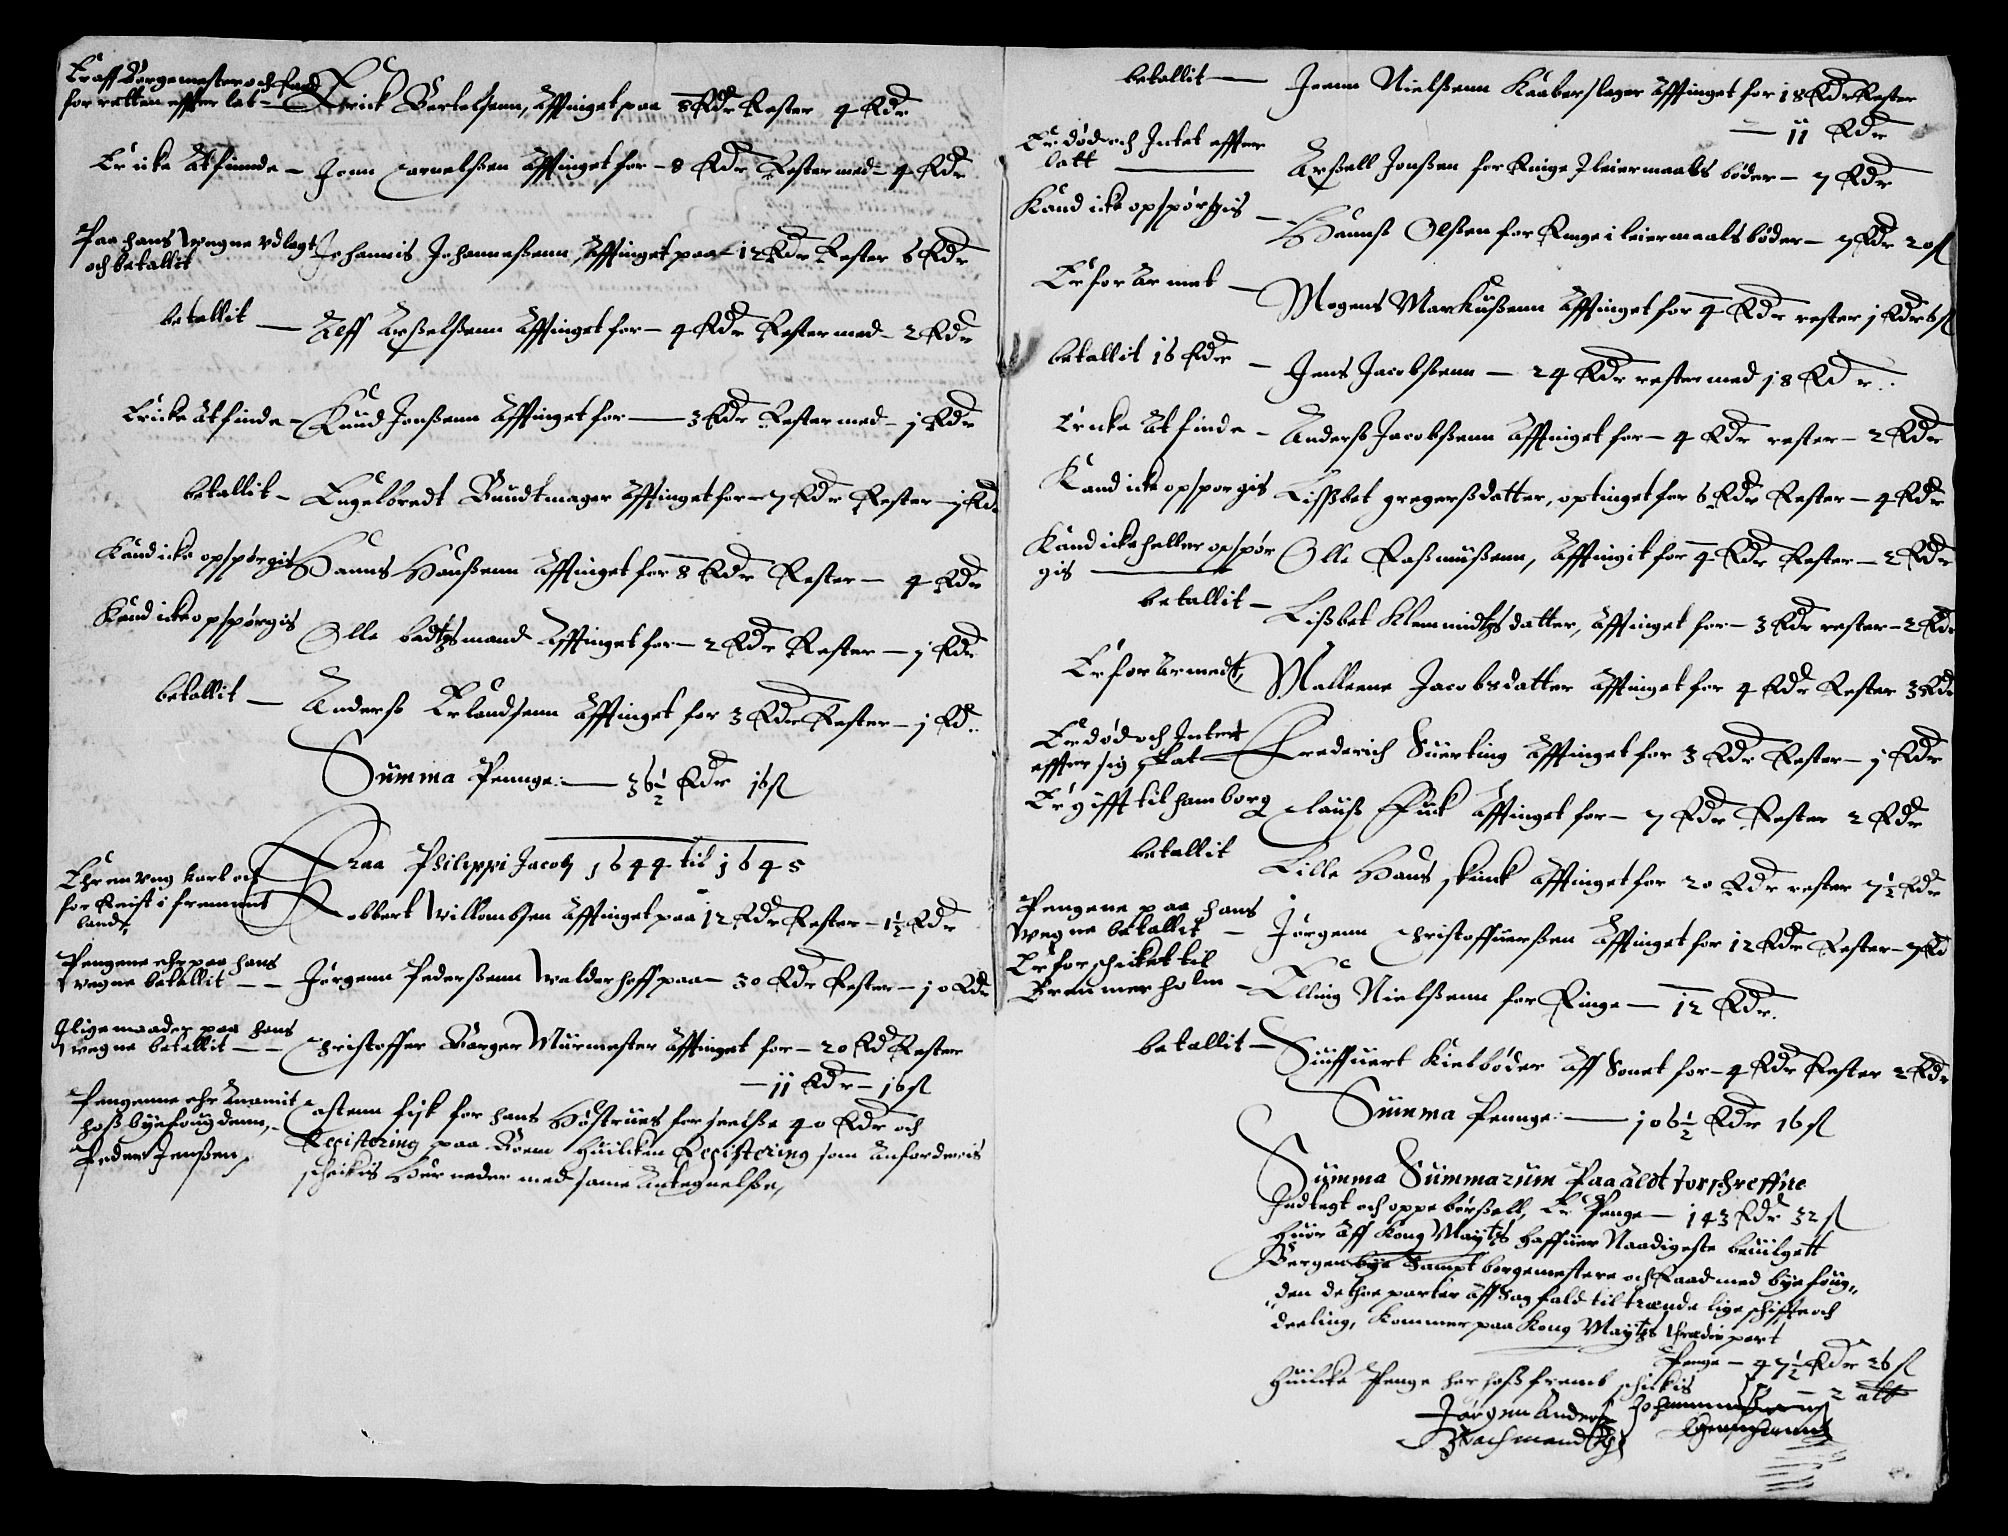 Er aff Borgemester och Raad
for retten effter lat — Erick Bertelsenn, Afftinget paa 8 Rdr Rester 4 Rdr
Er icke At finnde — Jenn Cornelsßen Affting et for — 8 Rdr Rester med — 4 Rdr
Paa hans Wegne vdlagt
och betallit
Johannis Johanneßenn, Affting et paa — 12 Rdr Rester 6 Rdr
betallit — Alff Axßelßenn Affting et for — 4 Rdr Rester med — 2 Rdr
Er icke At finde — Knud Jonßenn Affting et for — 3 Rdr Rester med — j Rdr
betallit — Engelbredt Bundtmager Affting et for — 7 Rdr Rester — j Rdr
Kand icke opspørgis Hanns Hanßenn Affting et for 8 Rdr Rester — 4 Rdr
Kand icke opspørgis Olle badtzmand Affting et for — 2 Rdr Rester — j Rdr
betallit — Anderß Erlandsenn Affting et for 3 Rdr Rester — j Rd
Summa Pennge: — 36½ Rdr 16 ß
Fraa Philippi Jacobj 1644 til 1645
Ehr en vng karl och
for Reist i fremmet
land
Robbert Willombsen Affting et paa 12 Rdr Rester — 1½ Rdr
Pengene ehr paa hans
Wegne betallit — — Jørgenn Pederßenn Walderhoff paa — 30 Rdr Rester — 10 Rdr
J lige maader paa hans
Wegne betallit — — Christoffer Borger Murmester Affting et for — 20 Rd Rester
— 11 Rdr — 16 ß
Pengenne ehr Anamit
hoß byefougdenn,
Peder Jenßen
Castenn fisk for hans Høstrues forseelße 40 Rdr och
Registering paa Boem huilcken Registering som Anforderis
schickis Her neder med same Antegnelße,
betallit — Jenn Nielßenn Kaaberslager Affting et for 18 Rdr Rester
— 11 Rdr
Er død och Intet effter
latt — Axßell Jonßen for Ringe J leiermaals bøder — 7 Rdr
Kand icke opspørgis — Hannß Olßen for Ringe i leiermaals bøder — 7 Rdr 20 ß
Er for Armet — Mogens Markußenn Affting et for 4 Rdr rester j Rdr 6 ß
betallit 16 Rdr — Jens Jacobßenn — 24 Rdr rester med 18 Rdr
Er icke At finde — Anderß Jacobßenn Affting et for — 4 Rdr rester — 2 Rdr
Kand icke opspørgis Lißbet gregerßdatter, optinget for 6 Rdr Rester — 4 Rdr
Kand icke heller opspør
gis — Olle Raßmußenn, Affting it for 4 Rdr Rester — 2 Rdr
betallit — Lißbet Klemmidtzdatter, Affting et for — 3 Rdr rester — 2 Rdr
Er for Armedt, Malleene Jacobsdatter Affting et for 4 Rdr Rester 3 Rdr
Er død och Intet
effter sig Lat — Frederich Suerting Affting et for 3 Rdr Rester — j Rdr
Er gifft til hamborg Clauß Fuck Affting et for — 7 Rdr Rester 2 Rdr
betallit Lille Hans skinck Affting et for 20 Rdr rester 7½ Rdr
Pengene paa hans
Wegne betallit — Jørgenn Christoffuerßen Affting et for 12 Rdr Rester — 7 Rd
Er forschicket til
Bremmerholm — Elling Nielßenn for Ringe — 12 Rdr.
betallit — Siuffuert Kielbøder Aff Sonet for — 4 Rdr Rester 2 Rdr
Summa Pennge: — 106½ Rdr 16 ß
Summa Summarum Paa Aldt forschreffne
Indtegt och oppebørßell, Er Penge — 143 Rdr 32 ß
Huor Aff Kong Maytz Haffuer Naadigeste beuilgett
Bergen bye Sampt borgemestere och Raad med byefoug„
„den de thoe parter Aff Sagfald til trende lige schiffte och
deeling, Kommer paa Kong Maytz thredie part
Penge — 47½ Rdr 26 ß
Huilcke Penge her hoß fremb schickis — 2 alb
Jørgen Anders